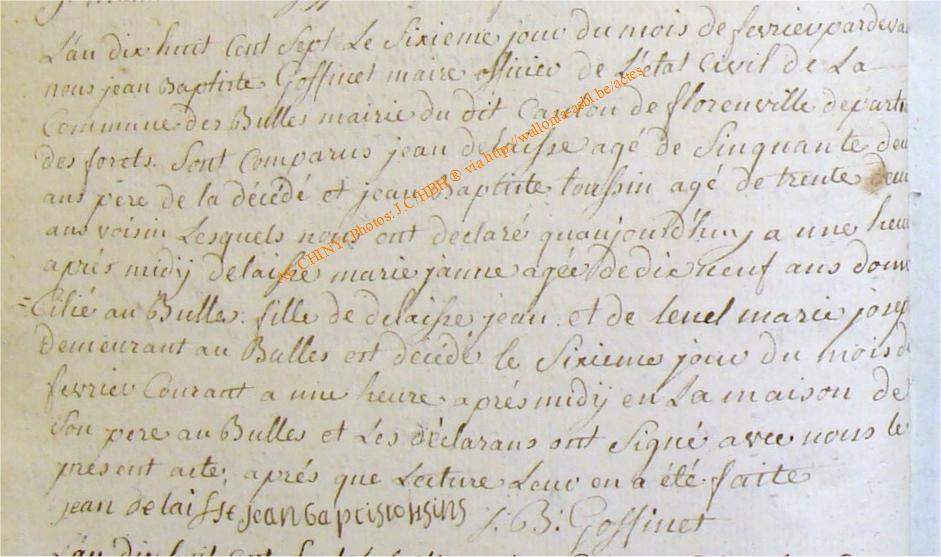 L'an dix huit Cent Sept Le Sixieme jour du mois de fevrier pardevan
nous jean Baptiste Goffinet maire officier de L'état Civil de La
Commune des Bulles mairie du dit Canton de florenville departe
des forets. Sont Comparus jean delaisse agé de Sinquante deu
ans pere de la décédé et jean Baptiste toussin agé de trente deux
ans voisin Lesquels nous ont declaré quaujourdhuy a une heur
aprés midy delaisse marie janne agée de dix neuf ans domi
=Cilié au Bulles. fille de delaisse jean et de marie josep
demeurant au Bulles est décédé le Sixieme jour du mois d
fevrier Courant a une heure aprés midy en La maison de
Son pere au Bulles et Les déclarans ont Signé avec nous le
present acte, aprés que Lecture Leur en a été faite
jean delaisse jean J: B: Goffinet
L'an dix huit Cent Sept
CHINY, Photos: J.C. HBH ® via http://wallonica.asbl.be/actes